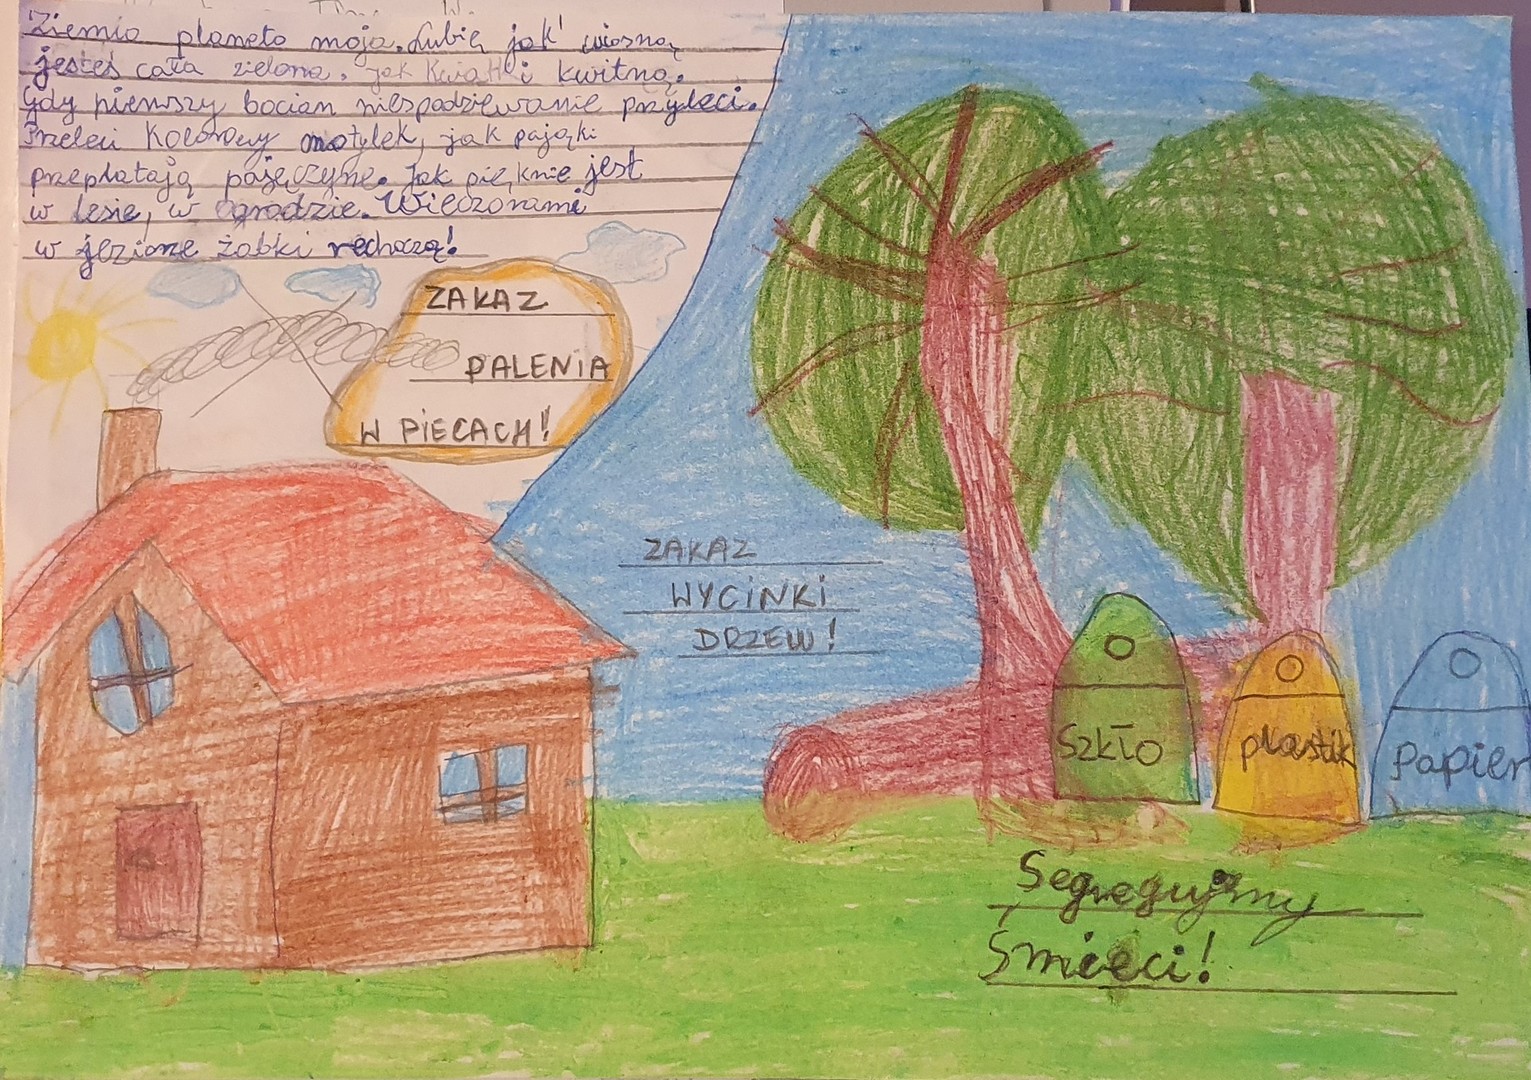 Ziemia planeto moja. Lubię jak wiosną
jesteś cała zielona. Jak Kwiatki kwitną.
Gdy pierwszy bocian niespodziewanie przyleci.
Przeleci Kolorowy motylek, jak pająki
przeplatają pajęczynę. Jak pięknie jest
w lesie, w ogrodzie. Wieczorami
w jeziorze żabki rechoczą!
ZAKAZ
PALENIA
W PIECACH!
ZAKAZ
WYCINKI
DRZEW!
Szkło
plastik
papier
Segregujmy
Śmieci!